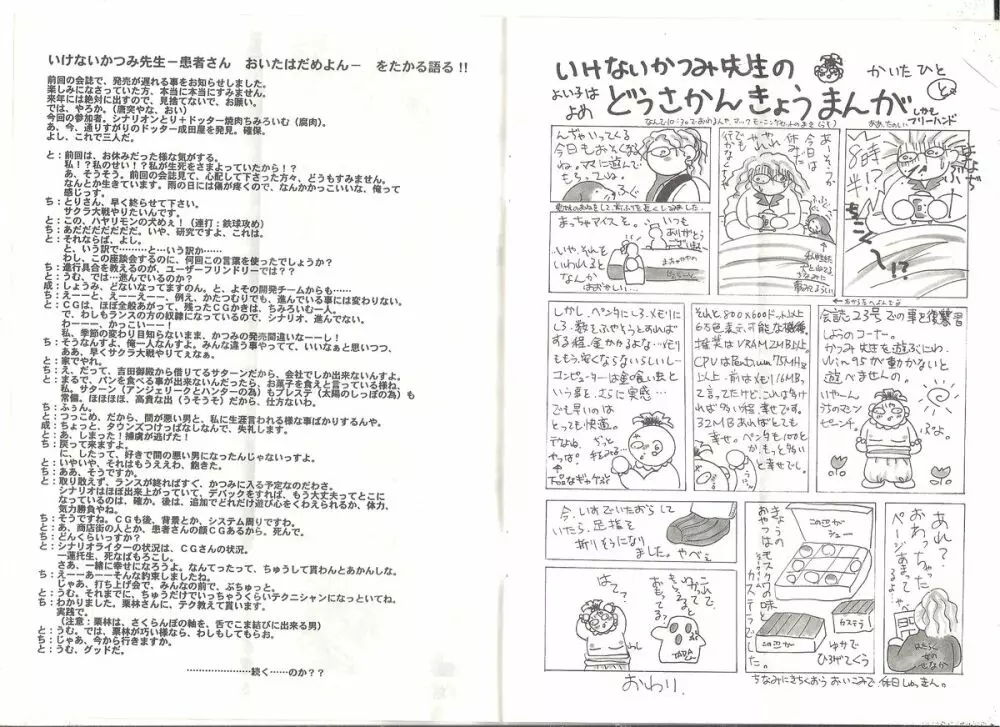 いけないかつみ先生－患者さん　おいたはだめよん－　をたかる語る!!
前回の会誌で、発売が遅れる事をお知らせしました。
楽しみになさっていた方、本当に本当にすみません。
来年には絶対に出すので、見捨てないで、お願い。
では、やろか。（唐突やな、おい）
今回の参加者。シナリオンとり＋ドッター焼肉ちみろいむ（腐肉）。
あ、今、通りすがりのドッター成田屋を発見。確保。
よし、これで三人だ。
と：前回は、お休みだった様な気がする。
私！？私のせい！？私が生死をさまよっていたから！？
あ、そうそう。前回の会誌見て、心配して下さった方々、どうもすみません。
なんとか生きています。雨の日には傷が疼くので、なんかかっこいいな、俺って
感じっす。
ち：とりさん、早く終らせて下さい。
サクラ大戦やりたいんです。
と：この、ハヤリモンの犬めぇ！（連打：鉄球攻め）
ち：あだだだだだだ。いや、研究ですよ、これは。
と：それならば、よし。
と、いう訳で………と…いう訳か……
わし、この座談会にて、何回この言葉を使ったでしょうか？
ち：進行具合を教えるのが、ユーザーフィンドリーでは？？
と：うむ、では…進んでいるのか？
成：しょうみ、どないなってますのん、と、よその開発チームからも……
ち：えーーと、えーーえーー、例え、かたつむりでも、進んでいる事には変わりない。
と：ＣＧは、ほぼ全般あがって、残ったＣＧかきは、ちみろいむ一人。
で、わしもランスの方の奴隷になっているので、シナリオ、進んでない。
わーーー、かっこいーー！
私、季節の変わり目知らないまま、かつみの発売間違いなーーし！
ち：そうなんすよ、俺一人なんすよ。みんな違う事やってて、いいなぁと思いつつ、
ああ、早くサクラ大戦やりてぇなぁ。
と：家でやれ。
ち：え、だって、吉田御殿から借りてるサターンだから、会社でしか出来ないんすよ。
と：まるで、パンを食べる事が出来ないんだったら、お菓子を食えと言っている様ね、
私。サターン（アンジェリークとハンターの為）もプレステ（太陽のしっぽの為）も
常備。ほほほほ、高貴な出（うそうそ）だから、仕方ないわ。
ち：ふぅん。
と：つっこめ、だから、間が悪い男と、私に生涯言われる様な事ばかりするんや。
成：ちょっと、タウンズつけっぱなしなんで、失礼します。
と：あ、しまった！捕虜が逃げた！
ち：戻って来ますよ。
に、したって、好きで間の悪い男になったんじゃないっすよ。
と：いやいや、それはもうええわ、飽きた。
ち：ああ、そうですか。
と：取り敢えず、ランスが終ればすぐ、かつみに入る予定なのだわさ。
シナリオはほぼ出来上がっていて、デバックをすれば、もう大丈夫ってとこに
なっているのは、確か。後は、追加でどれだけ遊び心をくわえられるか、体力、
気力勝負やね。
ち：そうですね。ＣＧも後、背景とか、システム周りですわ。
と：あ、商店街の人とか、患者さんの顔ＣＧあるから、死んで。
ち：どんくらいっすか？
と：シナリオライターの状況は、ＣＧさんの状況。
一蓮托生、死なばもろこし。
さあ、一緒に幸せになろうよ。なんてったって、ちゅうして貰わんとあかんしな。
ち：えーーあーーそんな約束しましたね。
じゃあ、打ち上げ会で、みんなの前で、ぶちゅっと。
と：うむ。それまでに、ちゅうだけでいっちゃうくらいテクニシャンになっといてね。
ち：わかりました。栗林さんに、テク教えて貰います。
実践で。
（注意：栗林は、さくらんぼの軸を、舌でこま結びに出来る男）
と：うむ。では、栗林が巧い様なら、わしもしてもらお。
ち：じゃあ、今から行きますか。
と：うむ、グッドだ。
……………………続く……のか？？
いけないかつみ先生の
かいたひと
と
よい子は
よめ
どうさかんきょうまんが
しかも
フリーハンド
んぢゃいってくる
今日もおそくなる
ね。ママに遊んで
もらっていな。
あーそうか
今日は
休みだ
8時
半!?
!?
まっちゃアイスを。
いつも
ありがとう
ござい〼
いや、それを
いわれると
なんか
はずかしい…
しかし、ペンタにしろ、メモリに
しろ、数をふやそうとおもえば
する程、金かかるよな…メモリ
ももう、安くならないらしいしー
コンピューターは金の喰い虫と
いう事を、さらに実感…
でも早いのは
とっても快適。
それと800×600ドット以上
6万色表示可能な機種。
推奨はVRAM2MB以上。
CPUはPentium75MHz
以上。前はメモリ16MB、
と言ってたけど、これは多け
れば多い程、幸せです。
32MBあればとても
幸せ。ペンタも100と
か、もっと多い
と幸せでし。
会誌23号での事を復讐
しようのコーナー。
かつみ先生を遊ぶにわ、
Win95が動かないと
遊べませんの。
いやーん
うちのマシン
ピーンチ。
今、いすでいたおらして
いたら、足指を
折りそうに
なりました。やべぇ
はて？
TADAくん
おわり。
この辺が
シュー
この辺が
カステラ
ゆかで
ひろげてくう
あれ？
おわっちゃった
ページあまって
るやん…
やべぇ
はたらく
女の
せなか
ちなみにさちくおう おいこみで、休日しゅっきん。